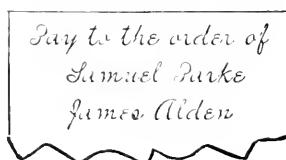 Pay to the order of
Samuel Parke
James Alden